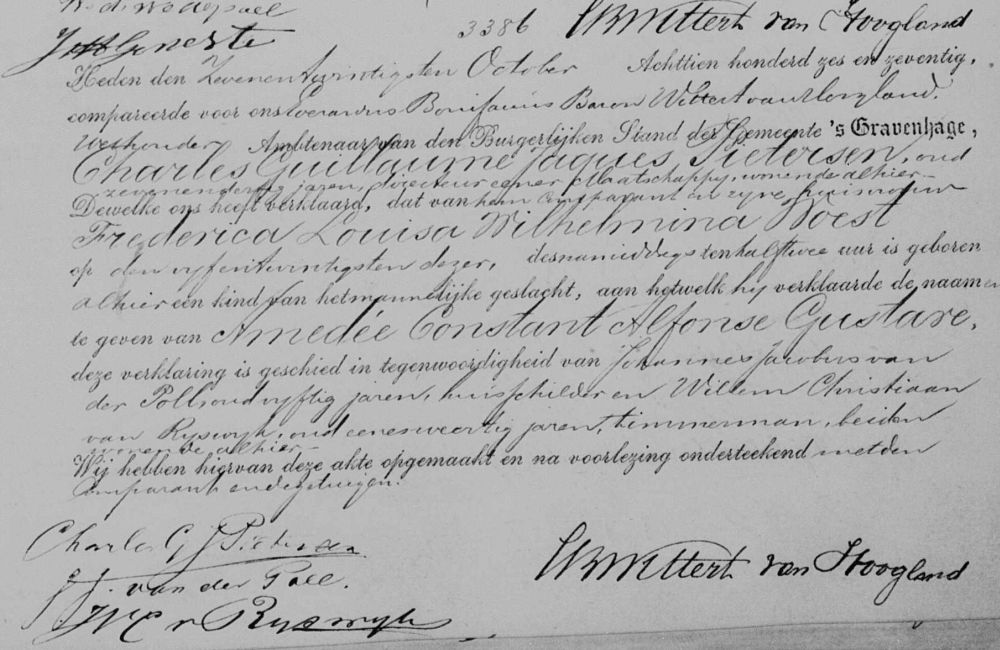 3386
van Hoogland
Heden den Zevenentwintigsten October Achttien honderd zes en zeventig,
compareerde voor ons Everardus Bonifacius Baron Wittert van Hoogland.
Wethouder Ambtenaar van den Burgerlijken Stand der Gemeente 's Gravenhage,
Charles Guillaume Jaques Pietersen, oud
zevenendertig jaren, directeur eener Maatschappy, wonende alhier
Dewelke ons heeft verklaard, dat van hem comparant en zyne huisvrouw
Frederica Louisa Wilhelmina Boest
op den vyfentwintigsten dezer, des namiddags ten half twee uur is geboren
alhier een kind van het mannelijke geslacht, aan hetwelk hij verklaarde de naamen
te geven van Amedée Constant Alfonse Gustave,
deze verklaring is geschied in tegenwoordigheid van Johannes Jacobus van
der Poll, oud vyftig jaren, huisschilder en Willem Christiaan
van Ryswyk, oud eenenveertig jaren, timmerman, beiden
wonende alhier
Wij hebben hiervan deze akte opgemaakt en na voorlezing onderteekend met den
Comparant en de getuigen.
Charles G J Pietersen
J J. van der Poll.
W C v Ryswyk
EB Wittert van Hoogland